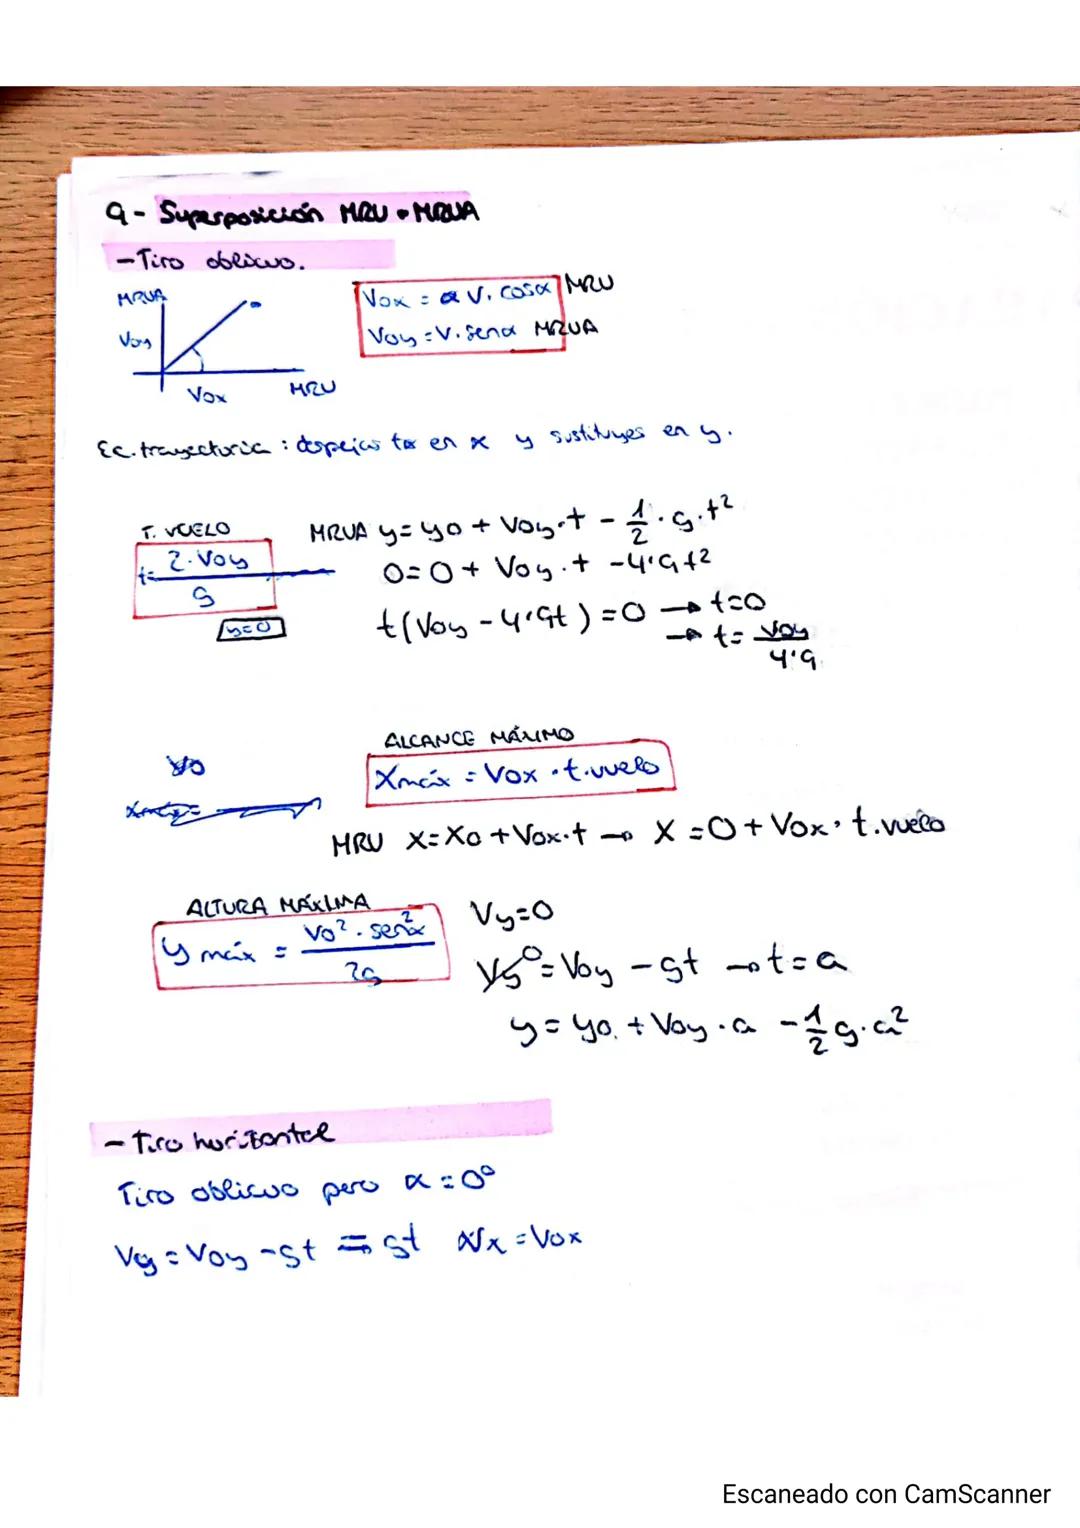 9- Superposición MRU + MRUA
- Tiro oblicuo.
MRUA
Voy
Vox MRU
Vox = V. cosα MRU
Voy = V. senα MRUA
Ec. trayectoria : despejas t en x y sustituyes en y.
T. VUELO
t= 2·Voy / g
y=0
MRUA y= yo + Voy·t - 1/2 ·g·t²
0=0+ Voy·t -4'9t²
t(Voy - 4'9t)=0 → t=0
→ t= Voy / 4'9
ALCANCE MÁXIMO
Xmáx = Vox · t.vuelo
MRU X=Xo+Vox·t → X=0+Vox· t.vuelo
ALTURA MÁXIMA
y máx = Vo²·sen²α / 2g
Vy=0
Vy⁰=Voy - gt → t=a
y= yo + Voy·a - 1/2 g·a²
- Tiro horizontal
Tiro oblicuo pero α=0º
Vy=Voy-gt = gt Vx=Vox
Escaneado con CamScanner